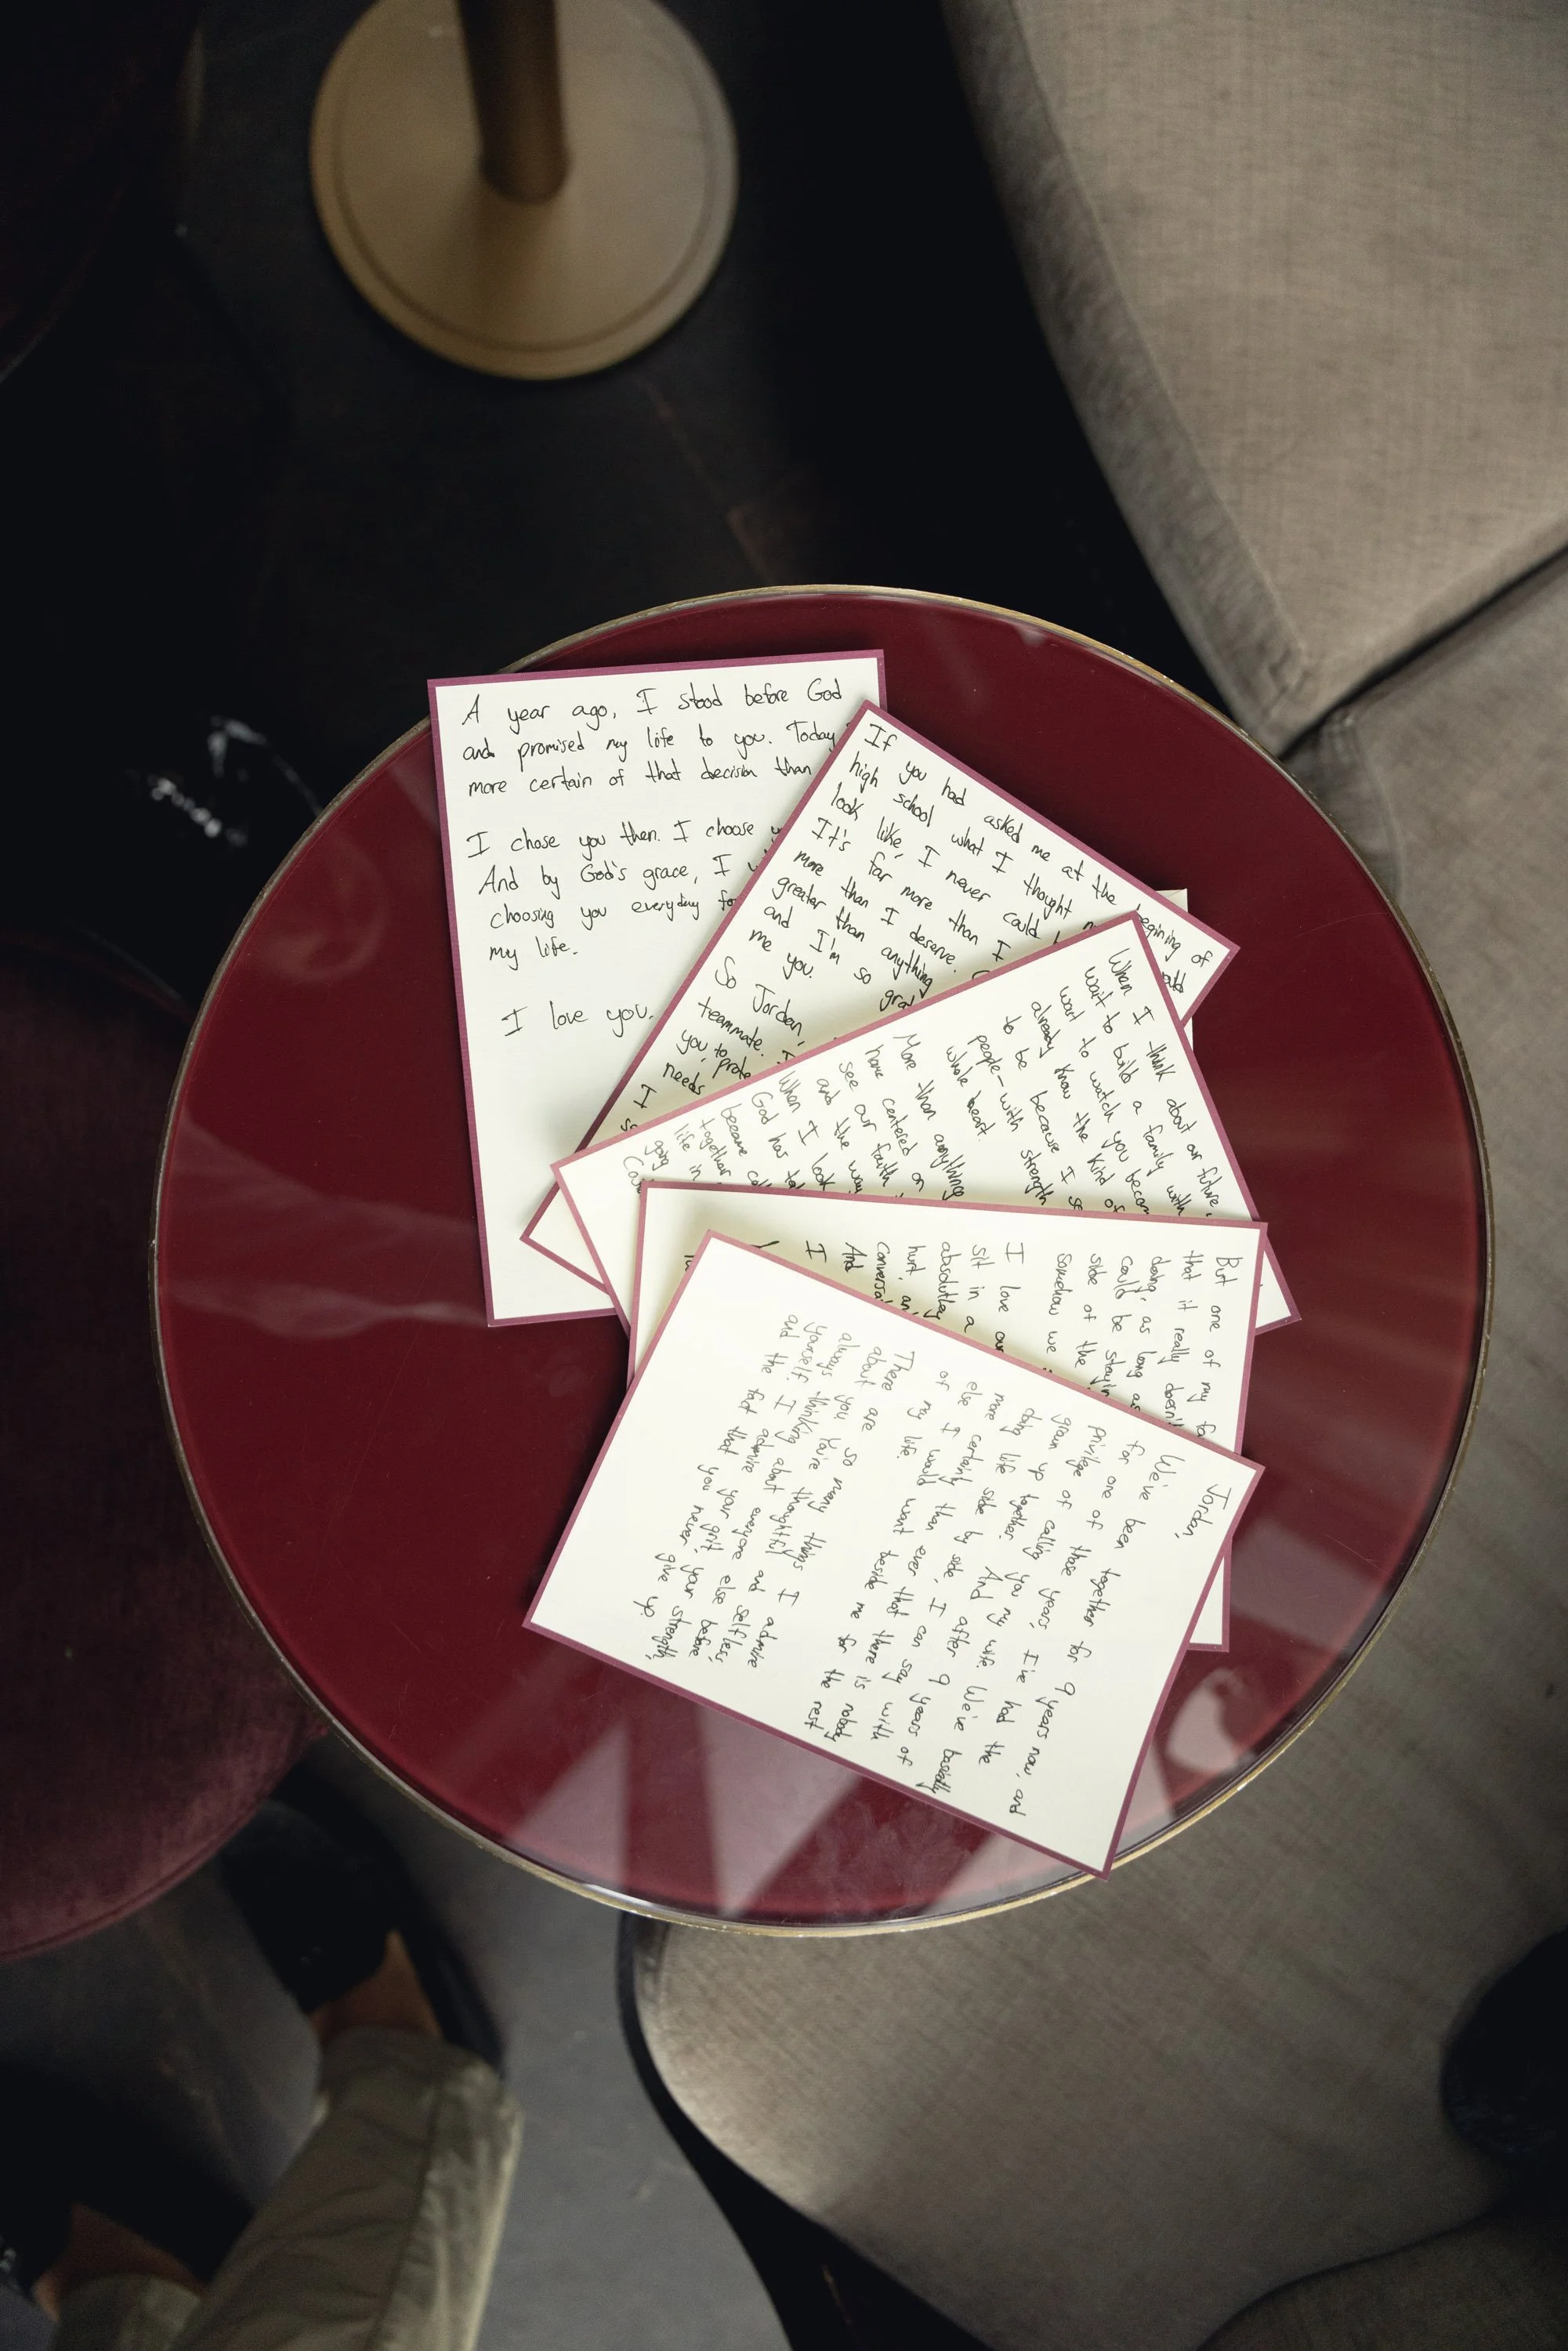 Jordan,
We've been together for 9 years now, and
for one of those years, I've had the
privilege of calling you my wife. We've basically
grown up together. And after 9 years of
doing life side by side, I can say with
more certainty than ever that there is nobody
else I would want beside me for the rest
of my life.
There are so many things I admire
about you. You're thoughtful and selfless,
always thinking about everyone else before
yourself. I admire your grit, your strength,
and the fact that you never give up.
But one of my
that it really doesn't
doing, as long as
could be
side of the
somehow we
I love our
sit in a
absolutley
hurt, an
And
I
When I think about our future,
wait to build a family with
want to watch you becom
already know the kind of
to be because I se
people- with strength
whole heart.
More than anything
have centered on
see our faith
and the way
When I look
God has
became
together
life in
going
If you had asked me at the begining of
high school what I thought
look like, I never could
It's far more than I
more than I deserve.
greater than anything
and I'm so
me you.
So Jordan,
teammate. I
you, to prote
needs
I
A year ago, I stood before God
and promised my life to you. Today
more certain of that decision than
I chose you then. I choose
And by God's grace, I
choosing you everyday for
my life.
I love you.